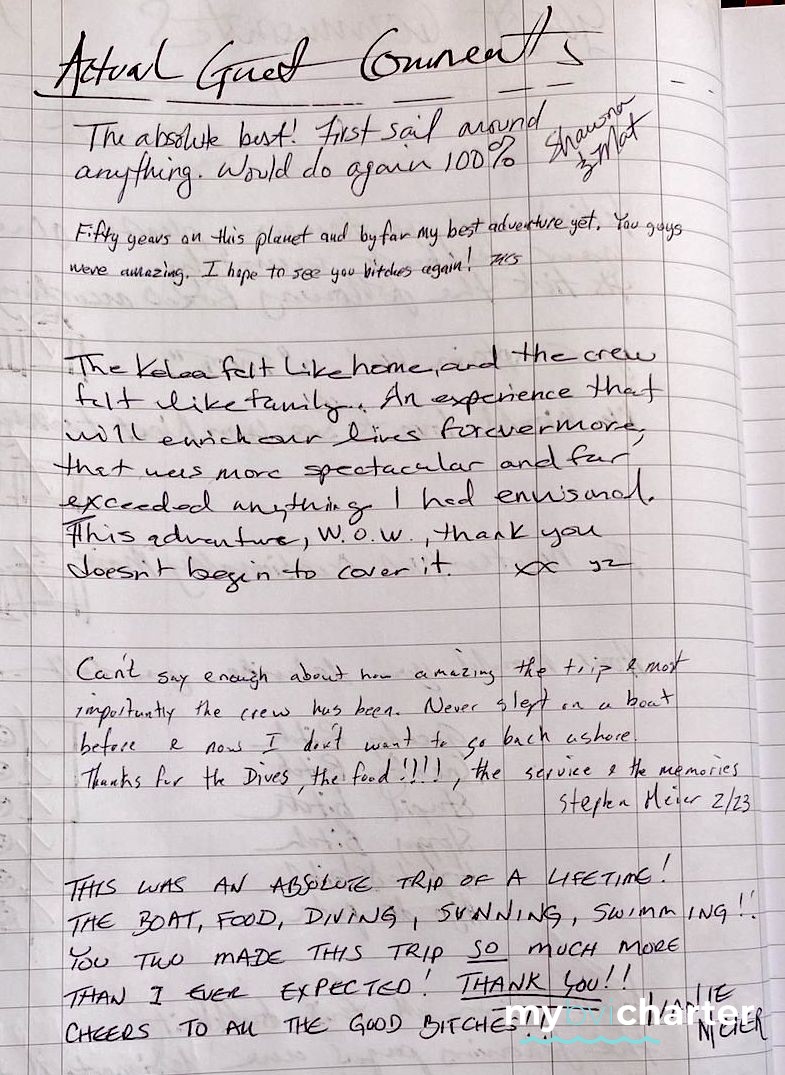 Actual Guest Comments
The absolute best! First sail around
anything. Would do again 100%
Shawna
& Mat
Fifty years on this planet and by far my best adventure yet. You guys
were amazing. I hope to see you bitches again!
The Kelea felt like home, and the crew
felt like family. An experience that
will enrich our lives forevermore,
that was more spectacular and far
exceeded anything I had envisond.
This adventure, W.O.W., thank you
doesn't begin to cover it. xx
Can't say enough about how amazing the trip & most
importantly the crew has been. Never slept on a boat
before & now I don't want to go back ashore.
Thanks for the Dives, the food!!!!, the service & the memories
Stephen Meier 2/23
THIS WAS AN ABSOLUTE TRIP OF A LIFETIME!
THE BOAT, FOOD, DIVING, SUNNING, SWIMMING!!
YOU TWO MADE THIS TRIP SO MUCH MORE
THAN I EVER EXPECTED! THANK YOU!!
CHEERS TO ALL THE GOOD BITCHES!
MEIER
mybvicharter